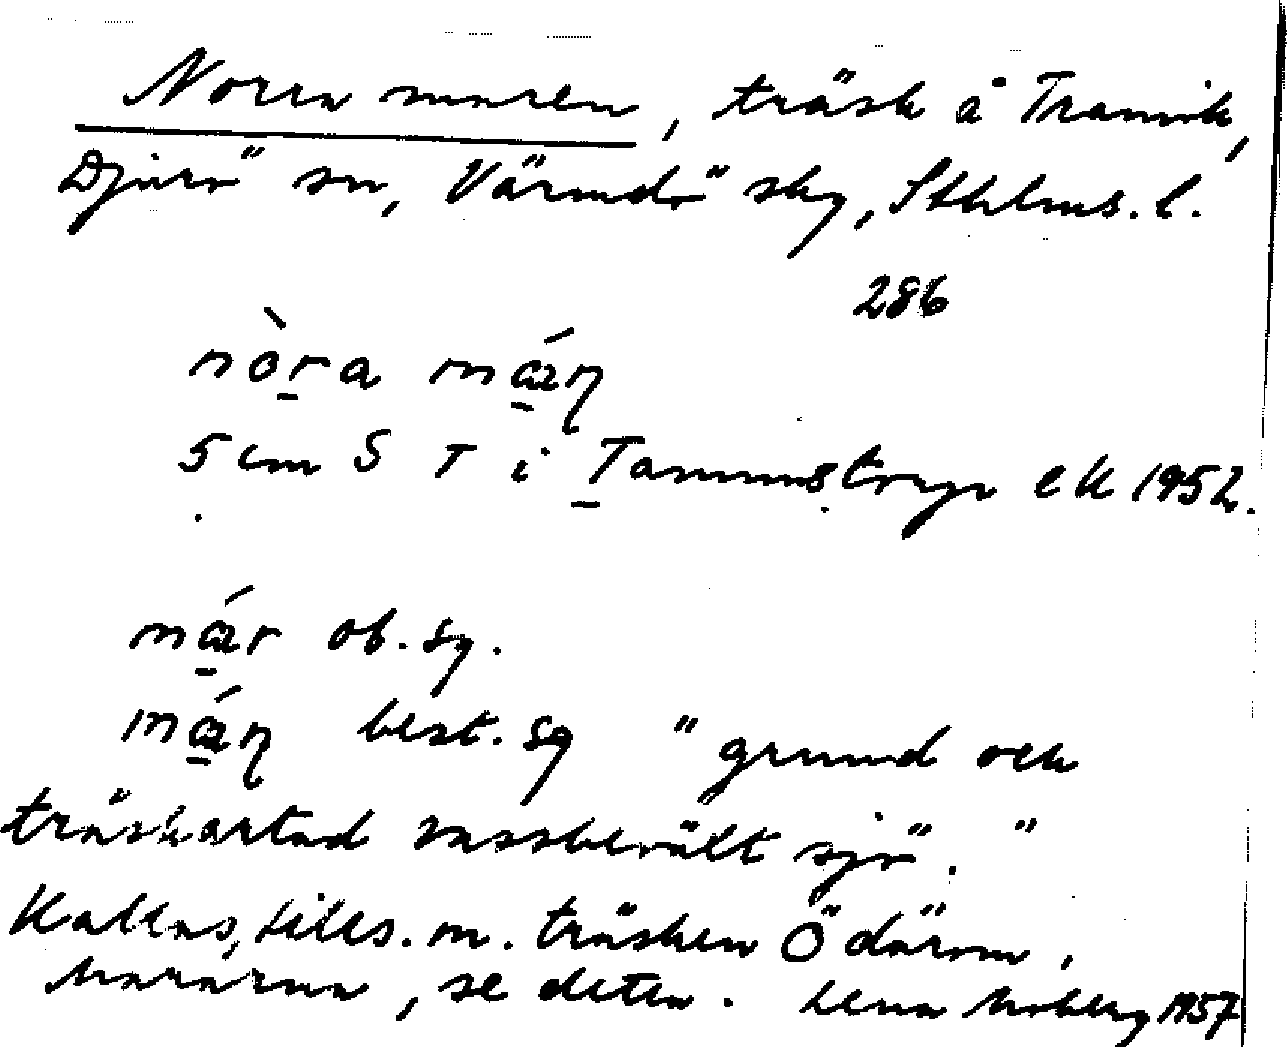 Norra maren, träsk å Tranvik,
Djurö sn, Värmdö skg, Sthlms. l.
286
nòra mán
5 cm S T i Tammstryp ek 1952.
már ob. sg.
mán best. sg "grund och
träskartad vassbevält sjö."
Kallas, tills. m. träsken Ö därom,
Mararna, se detta. Lena Moberg 1957